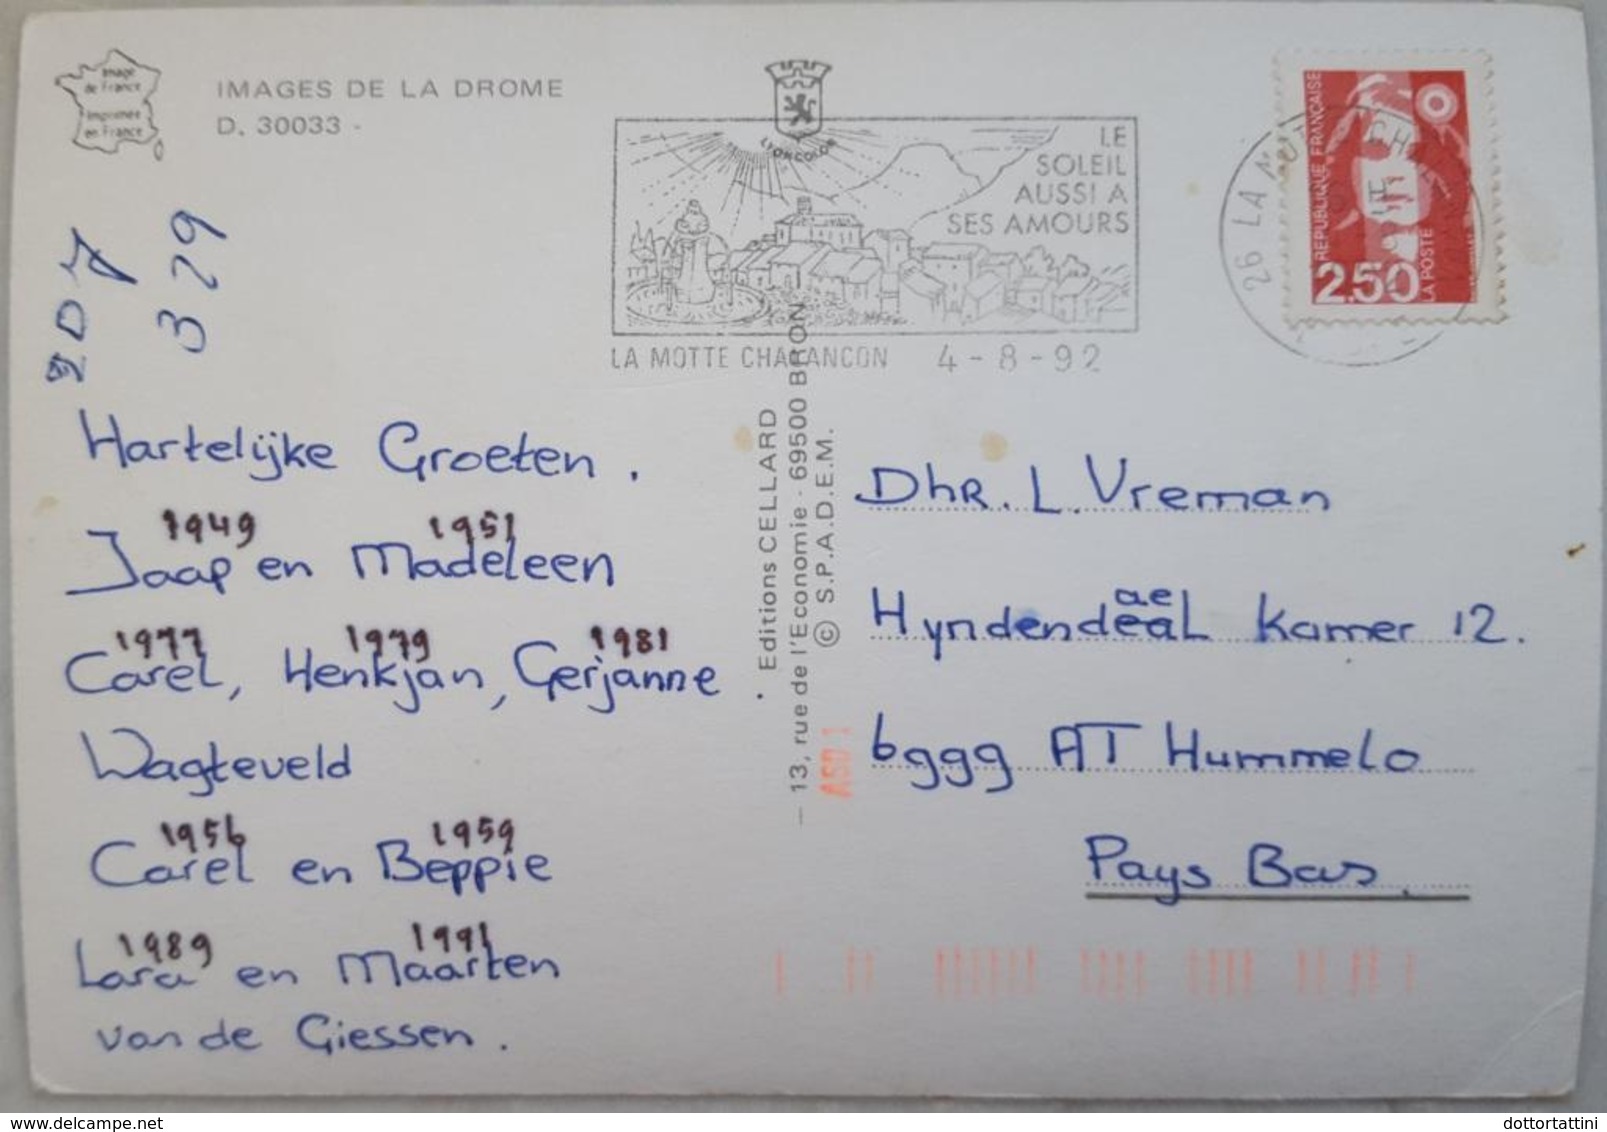 Image
de France
Imprimée
en France
IMAGES DE LA DROME
D. 30033 -
207
329
LYONCOLOR
LE
SOLEIL
AUSSI A
SES AMOURS
LA MOTTE CHALANCON 4-8-92
26 LA MOTTE CHALANCON
REPUBLIQUE FRANÇAISE
2,50
LA POSTE
Hartelijke Groeten.
1949 1951
Jaap en Madeleen
1977 1979 1981
Carel, Henkjan, Gerjanne
Wagteveld
1956 1959
Carel en Beppie
1989 1991
Lara en Maarten
van de Giessen.
Editions CELLARD
13, rue de l'Economie - 69500 BRON
© S.P.A.D.E.M.
ASD 1
Dhr. L. Vreman
ae
Hyndendeal Kamer 12.
6999 AT Hummelo
Pays Bas.
dottortattini